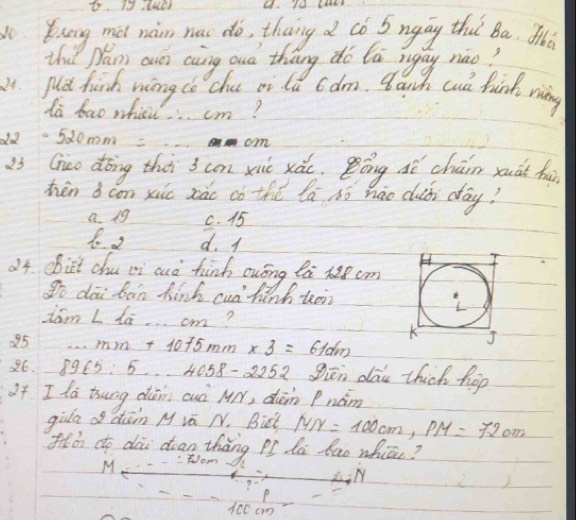 b. 19 tuổi d. 18 tuổi
20 Trong một năm nào đó, tháng 2 có 5 ngày thứ Ba. Hỏi
thứ Năm cuối cùng của tháng đó là ngày nào?
21. Một hình vuông có chu vi là 6dm. Cạnh của hình vuông
là bao nhiêu ... cm?
22 520mm = ... cm
23 Gieo đồng thời 3 con xúc xắc. Tổng số chấm xuất hiện
trên 3 con xúc xắc có thể là số nào dưới đây?
a. 19 c. 15
b. 2 d. 1
24. Biết chu vi của hình vuông là 128 cm
Độ dài bán kính của hình tròn
tâm L là ... cm?
H I
L
K J
25 ... mm + 1075mm x 3 = 61dm
26. 8965 : 5 ... 4058 - 2252 Điền dấu thích hợp
27. I là trung điểm của MN, điểm P nằm
giữa 2 điểm M và N. Biết MN = 100cm, PM = 72cm
Hỏi độ dài đoạn thẳng PI là bao nhiêu?
72cm
M N
P
100 cm